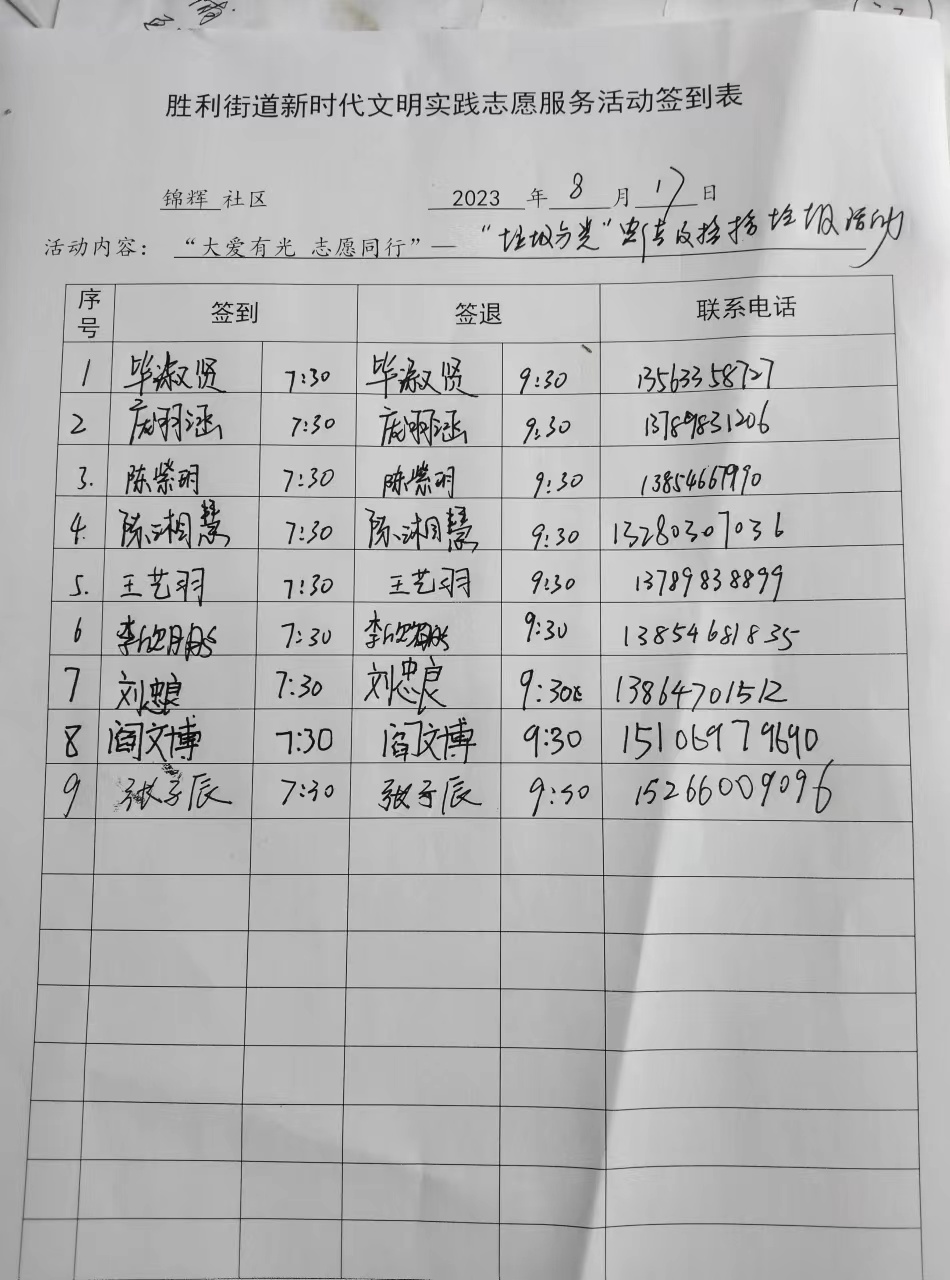 胜利街道新时代文明实践志愿服务活动签到表
锦辉 社区 2023 年 8 月 17 日
活动内容： “大爱有光 志愿同行”— “垃圾分类”宣传及捡拾垃圾活动
序号 签到 签退 联系电话
1 毕淑贤 7:30 毕淑贤 9:30 13563358727
2 庞羽涵 7:30 庞羽涵 9:30 13789831206
3. 陈紫玥 7:30 陈紫玥 9:30 13854667990
4. 陈湘慧 7:30 陈湘慧 9:30 13280307036
5. 王艺羽 7:30 王艺羽 9:30 13789838899
6 7:30 9:30 13854681835
7 刘忠良 7:30 刘忠良 9:30 13864701512
8 阎文博 7:30 阎文博 9:30 15106979690
9 张子辰 7:30 张子辰 9:30 15266009096